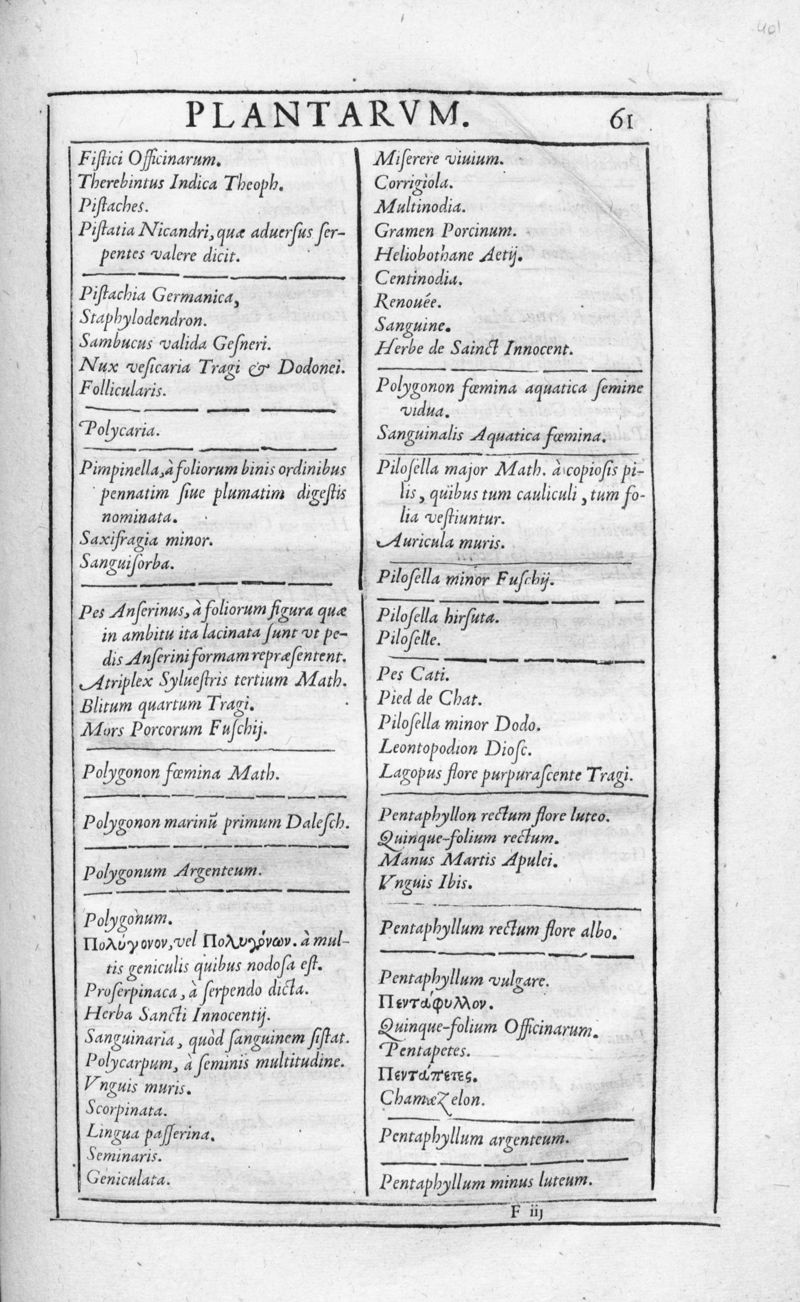 401
PLANTARVM. 61
Fiſtici Officinarum.
Therebintus Indica Theoph.
Piſtaches.
Piſtatia Nicandri, quæ aduerſus ſer-
pentes valere dicit.
Piſtachia Germanica,
Staphylodendron.
Sambucus valida Geſneri.
Nux veſicaria Tragi & Dodonei.
Follicularis.
Polycaria.
Pimpinella, à foliorum binis ordinibus
pennatim ſiue plumatim digeſtis
nominata.
Saxifragia minor.
Sanguiſorba.
Pes Anſerinus, à foliorum figura quæ
in ambitu ita lacinata ſunt vt pe-
dis Anſerini formam repræſentent.
Atriplex Sylueſtris tertium Math.
Blitum quartum Tragi.
Mors Porcorum Fuſchij.
Polygonon fœmina Math.
Polygonon marinũ primum Daleſch.
Polygonum Argenteum.
Polygonum.
Πολύγονον, vel Πολυγόνων. à mul-
tis geniculis quibus nodoſa eſt.
Proſerpinaca, à ſerpendo dicta.
Herba Sancti Innocentij.
Sanguinaria, quòd ſanguinem ſiſtat.
Polycarpum, à ſeminis multitudine.
Vnguis muris.
Scorpinata.
Lingua paſſerina.
Seminaris.
Geniculata.
Miſerere viuium.
Corrigiola.
Multinodia.
Gramen Porcinum.
Heliobothane Aetij.
Centinodia.
Renouée.
Sanguine.
Herbe de Sainct Innocent.
Polygonon fœmina aquatica ſemine
vidua.
Sanguinalis Aquatica fœmina.
Piloſella major Math. à copioſis pi-
lis, quibus tum cauliculi, tum fo-
lia veſtiuntur.
Auricula muris.
Piloſella minor Fuſchij.
Piloſella hirſuta.
Piloſelle.
Pes Cati.
Pied de Chat.
Piloſella minor Dodo.
Leontopodion Dioſc.
Lagopus flore purpuraſcente Tragi.
Pentaphyllon rectum flore luteo.
Quinque-folium rectum.
Manus Martis Apulei.
Vnguis Ibis.
Pentaphyllum rectum flore albo.
Pentaphyllum vulgare.
Πενταφυλλον.
Quinque-folium Officinarum.
Pentapetes.
Πενταπετες.
Chamæzelon.
Pentaphyllum argenteum.
Pentaphyllum minus luteum.
F iij